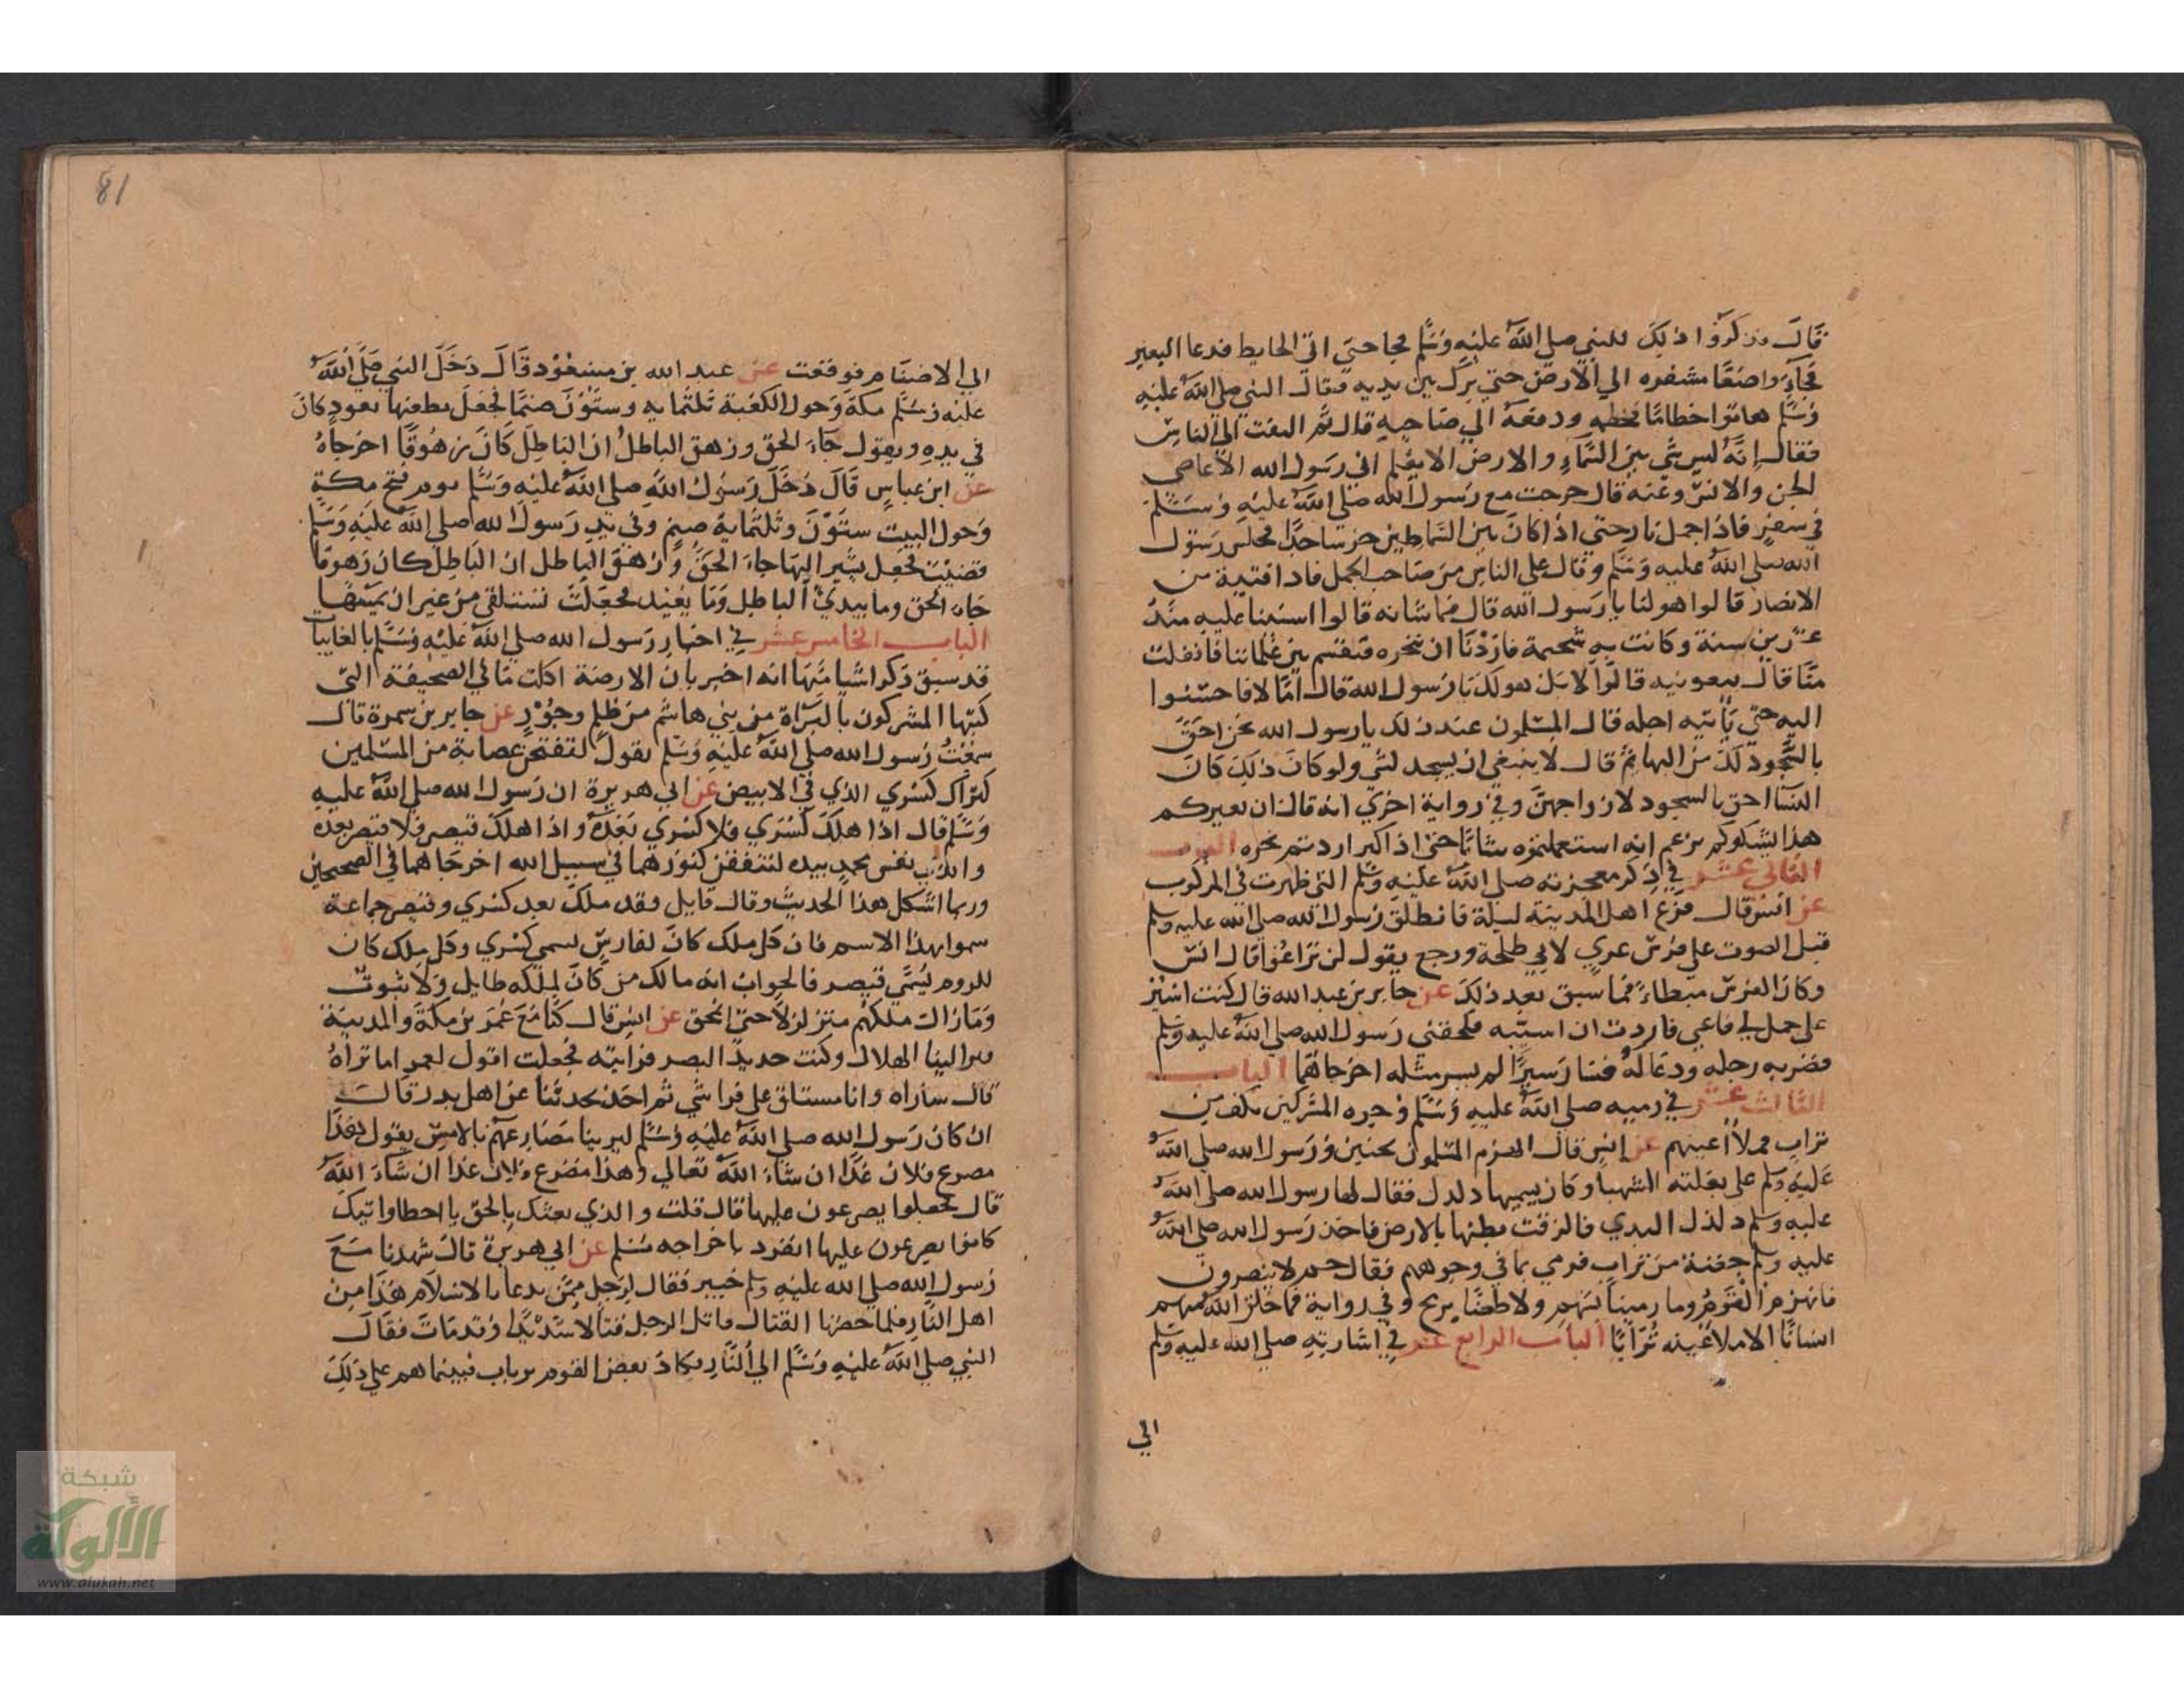 قَالَ فذكروا ذلِكَ للنبي صلي اللهُ عليْهِ وَسَلَّم فجا حتي اتي الحايط فدعا البعير
فجآءَ واضعًا مشفره الي الأرض حتي بَرَكَ بين يديه فقال النبي صلي اللهُ عليْهِ
وَسَلَّم هاتوا خطامًا فخطمه ودفعهُ الي صَاحبِهِ قال ثم التفت الي الناسِ
فقال إنَّهُ ليس شَي بَين السَّمآءِ والارض الا يعْلم اني رسَول الله الا عاصي
الجن والانس وعَنهُ قال خرجت مع رَسول الله صَلي اللهُ عَليْهِ وَسَلَّم
في سفرٍ فاذا جمل نا رحتي اذا كانَ بين السَّماطين خر سَاجدًا فجلس رَسَول
الله صلي اللهُ عليه وَسَلَّم وقال علي الناسِ من صَاحب الجمل فاذا فتية من
الانصَار قالوا هو لنا يا رَسول الله قال فما شانه قالوا استنينا عليه منذُ
عشرين سنة وكانت به شحيمة فارَدْنَا ان ننحره فنقسم بين غلماننا فانفلت
منَّا قال بيعونيه قالوا لا بل هو لكَ يا رَسول الله قال امَّا لا فاحسنوا
اليه حتي يَأتيه اجله قال المسْلمون عند ذلك يا رسول الله نحن احَقّ
بالسُّجود لكَ من البهائم قال لا ينبغي ان يسجد لشي ولو كانَ ذلِكَ كانَ
النسَآ احق بالسجود لازواجهنَّ وفي رواية اخرَي انه قال ان بعيركم
هذا يشكوكم يزعم انه استعملتموه شابًا حتي اذا كبر اردتم نحره الباب
الثاني عشر في ذِكر معجزته صلي اللهُ عليْهِ وسَلم التي ظهرت في المركوب
عن انس قال فزع اهل المدينة ليلة فانطلق رَسول الله صلي الله عليه وسلم
قبل الصوت علي فرس عري لابي طلحة ورجع يقول لن تراعُوا قال انس
وكان الفرس مبطاءً فما سبق بعد ذلكَ عن جابر بن عبد الله قال كنت اسير
علي جمل لي فاعيي فاردت ان اسيّبه فلحقني رَسول الله صلي اللهُ عليه وسلم
فضربه رجله ودعا لهُ فسَار سيرًا لم يسر مثله اخرجاهُمَا الباب
الثالث عشر في رميه صلي اللهُ عليهِ وَسَلَّم وجوه المشركين بكف من
تراب فملأ أعينهم عن انس قال انهزم المسْلمون بحنين ورَسول الله صلي اللهُ
عَليْهِ وسلم علي بغلته الشهبآ وكان يسميها دلدل فقال لها رسول الله صلي اللهُ
عليه وسلم دلدل البدي فالزقت بطنها بالارض فاخذ رَسول الله صلي اللهُ
عليه وسلم حفنة من تراب فرمي بها في وجوههم فقال حم لا ينصرون
فانهزم القَومُ وما رمينا بسَهمٍ ولا طعَنّا برمح وفي رواية فما خلق اللهُ منهم
انسَانًا الا ملا عَينه تُرَابًا الباب الرابع عشر في اشارته صلي الله عليه وسلم
الي
81
الي الاصنَام فوقعت عن عبد الله بن مسْعُوْد قَالَ دَخَلَ النبي صَلَّي اللهُ
عليْه وَسَلَّم مكة وَحول الكَعْبة ثلثمايه وستّوْنَ صَنمًا فجعَلَ يطعنها بعود كانَ
في يدِهِ ويقول جَآءَ الحق وزهق الباطلُ ان البَاطِلَ كَانَ زهُوقًا اخرجاهُ
عن ابن عباسٍ قَالَ دَخَلَ رَسوْل الله صلي اللهُ عليْه وَسَلَّم يوم فتح مكة
وَحول البيت ستّوْنَ وثلثماية صنمٍ وفي يد رَسول الله صلي اللهُ عليْهِ وَسَلَّم
قضيْب فجعل يشير اليهَا جاءَ الحَقُّ وزهَقَ الباطل ان البَاطِلَ كان زَهوقا
جَاء الحق وما يبديُ الباطل وَمَا يعُيد فجعَلتْ تستلقي من غير ان يمسَّهَا
الباب الخامس عشر في اخبار رَسول الله صلي اللهُ عليْهِ وَسَلَّم بالغايبات
قد سبق ذكر اشيا منهَا انه اخبر بان الارضة اكلت مَا في الصحيفة التي
كتبها المشركون بالبرَاة من بني هاشم من ظلمٍ وجُوْرٍ عن جابر بن سمرة قال
سَمِعْتُ رَسول الله صلي اللهُ عليْهِ وَسَلم يقول لتفتحن عصَابة من المسْلمين
كنزَ آل كسْري الذي في الابيض عن ابي هريرة ان رَسول الله صلي اللهُ عليه
وَسَلَّم قال اذا هلَكَ كسْرَي فلا كسْري بَعْدهُ واذا هلكَ قيصر فلا قيصر بعدَهُ
والذي نفس محمدٍ بيده لتنفقن كنوزهما في سبيل الله اخرجَاهما في الصحيحين
وربما اشكل هذا الحديث وقال قايل فقد ملكَ بعد كسْري وقيصر جماعة
سموا بهذا الاسم فان كل ملك كانَ لفارس يسمي كسْري وكل ملك كان
للروم يُسَمَّي قيصر فالجواب انه ما ملك من كَانَ لملكه طايل وَلا ثبوت
وَمَا زال ملكهُم متزلزلاً حتي انمحق عن انس قال كنَّا مَعَ عُمَر بن مكةَ والمدينة
فترالينا الهلال وكنت حديدَ البصر فرَايته فجُعلت اقول لعمر اما ترَاهُ
قال سَاراه وانا مستلق علي فراشي ثم اخَذ يحدثنا عن اهل بدر قال
ان كان رَسول الله صلي اللهُ عليْه وَسَلم ليرينا مصَارعهُم بالامس يقول هَذا
مصرع فلان غدًا ان شَاءَ اللهُ تعالي وهذا مصْرع فلان غدا ان شَاءَ اللهُ
قال فجعلوا يصرعون عليها قال قلت والذي بعثك بالحَق ما اخطاوا تيك
كانوا يصرعون عليها انفرد باخراجه مسْلم عن ابي هريرة قالَ شَهدنا مَعَ
رَسول الله صلي الله عليْهِ وسلم خيبر فقال لِرَجل ممَّن يدعا بالاسْلاَم هَذا من
اهل النَّار فلما حضرنا القتال قاتل الرجل قتالا شَديْدًا وَقد مَاتَ فقَالَ
النبي صلي اللهُ عليْهِ وَسَلَّم الي النَّار فكادَ بعض القوم يرتاب فبينما هم علي ذلِكَ
شبكة
الألوكة
www.alukah.net